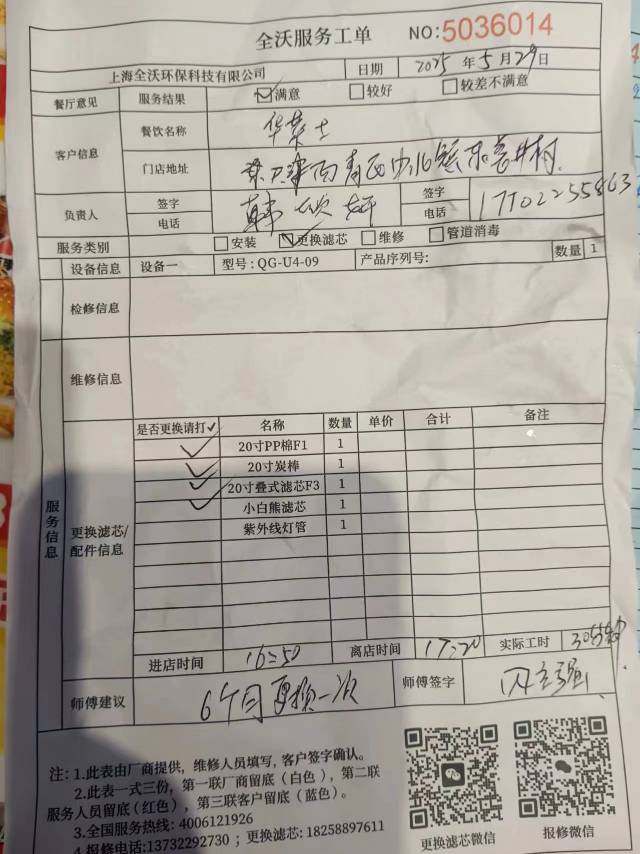 全沃服务工单 NO:5036014
上海全沃环保科技有限公司 日期 2025年5月29日
餐厅意见 服务结果 满意 较好 较差不满意
客户信息 餐饮名称 华莱士
门店地址
负责人 签字 签字
电话 电话 17702255863
服务类别 安装 更换滤芯 维修 管道消毒
设备信息 设备一 型号: QG-U4-09 产品序列号: 数量 1
检修信息
维修信息
服务信息
更换滤芯/配件信息
是否更换请打✓ 名称 数量 单价 合计 备注
✓ 20寸PP棉F1 1
✓ 20寸炭棒 1
✓ 20寸叠式滤芯F3 1
✓ 小白熊滤芯 1
紫外线灯管 1
进店时间 16:50 离店时间 17:20 实际工时 30分钟
师傅建议 6个月更换一次 师傅签字
注: 1.此表由厂商提供，维修人员填写, 客户签字确认。
2.此表一式三份，第一联厂商留底（白色），第二联
服务人员留底(红色），第三联客户留底（蓝色）。
3.全国服务热线: 4006121926
4.报修电话:13732292730 ; 更换滤芯: 18258897611
更换滤芯微信 报修微信